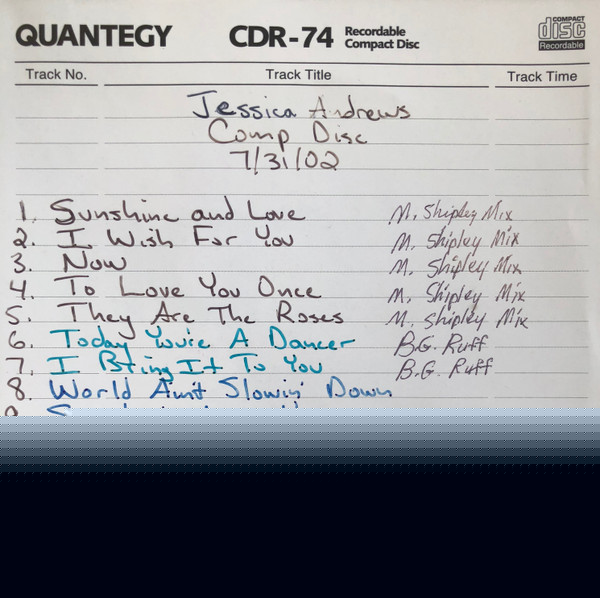 QUANTEGY CDR-74 Recordable Compact Disc COMPACT disc Recordable
Track No. Track Title Track Time
Jessica Andrews
Comp Disc
7/31/02
1. Sunshine and Love M. Shipley Mix
2. I Wish For You M. Shipley Mix
3. Now M. Shipley Mix
4. To Love You Once M. Shipley Mix
5. They Are The Roses M. Shipley Mix
6. Today You're A Dancer B.G. Ruff
7. I Bring It To You B.G. Ruff
8. World Ain't Slowin' Down